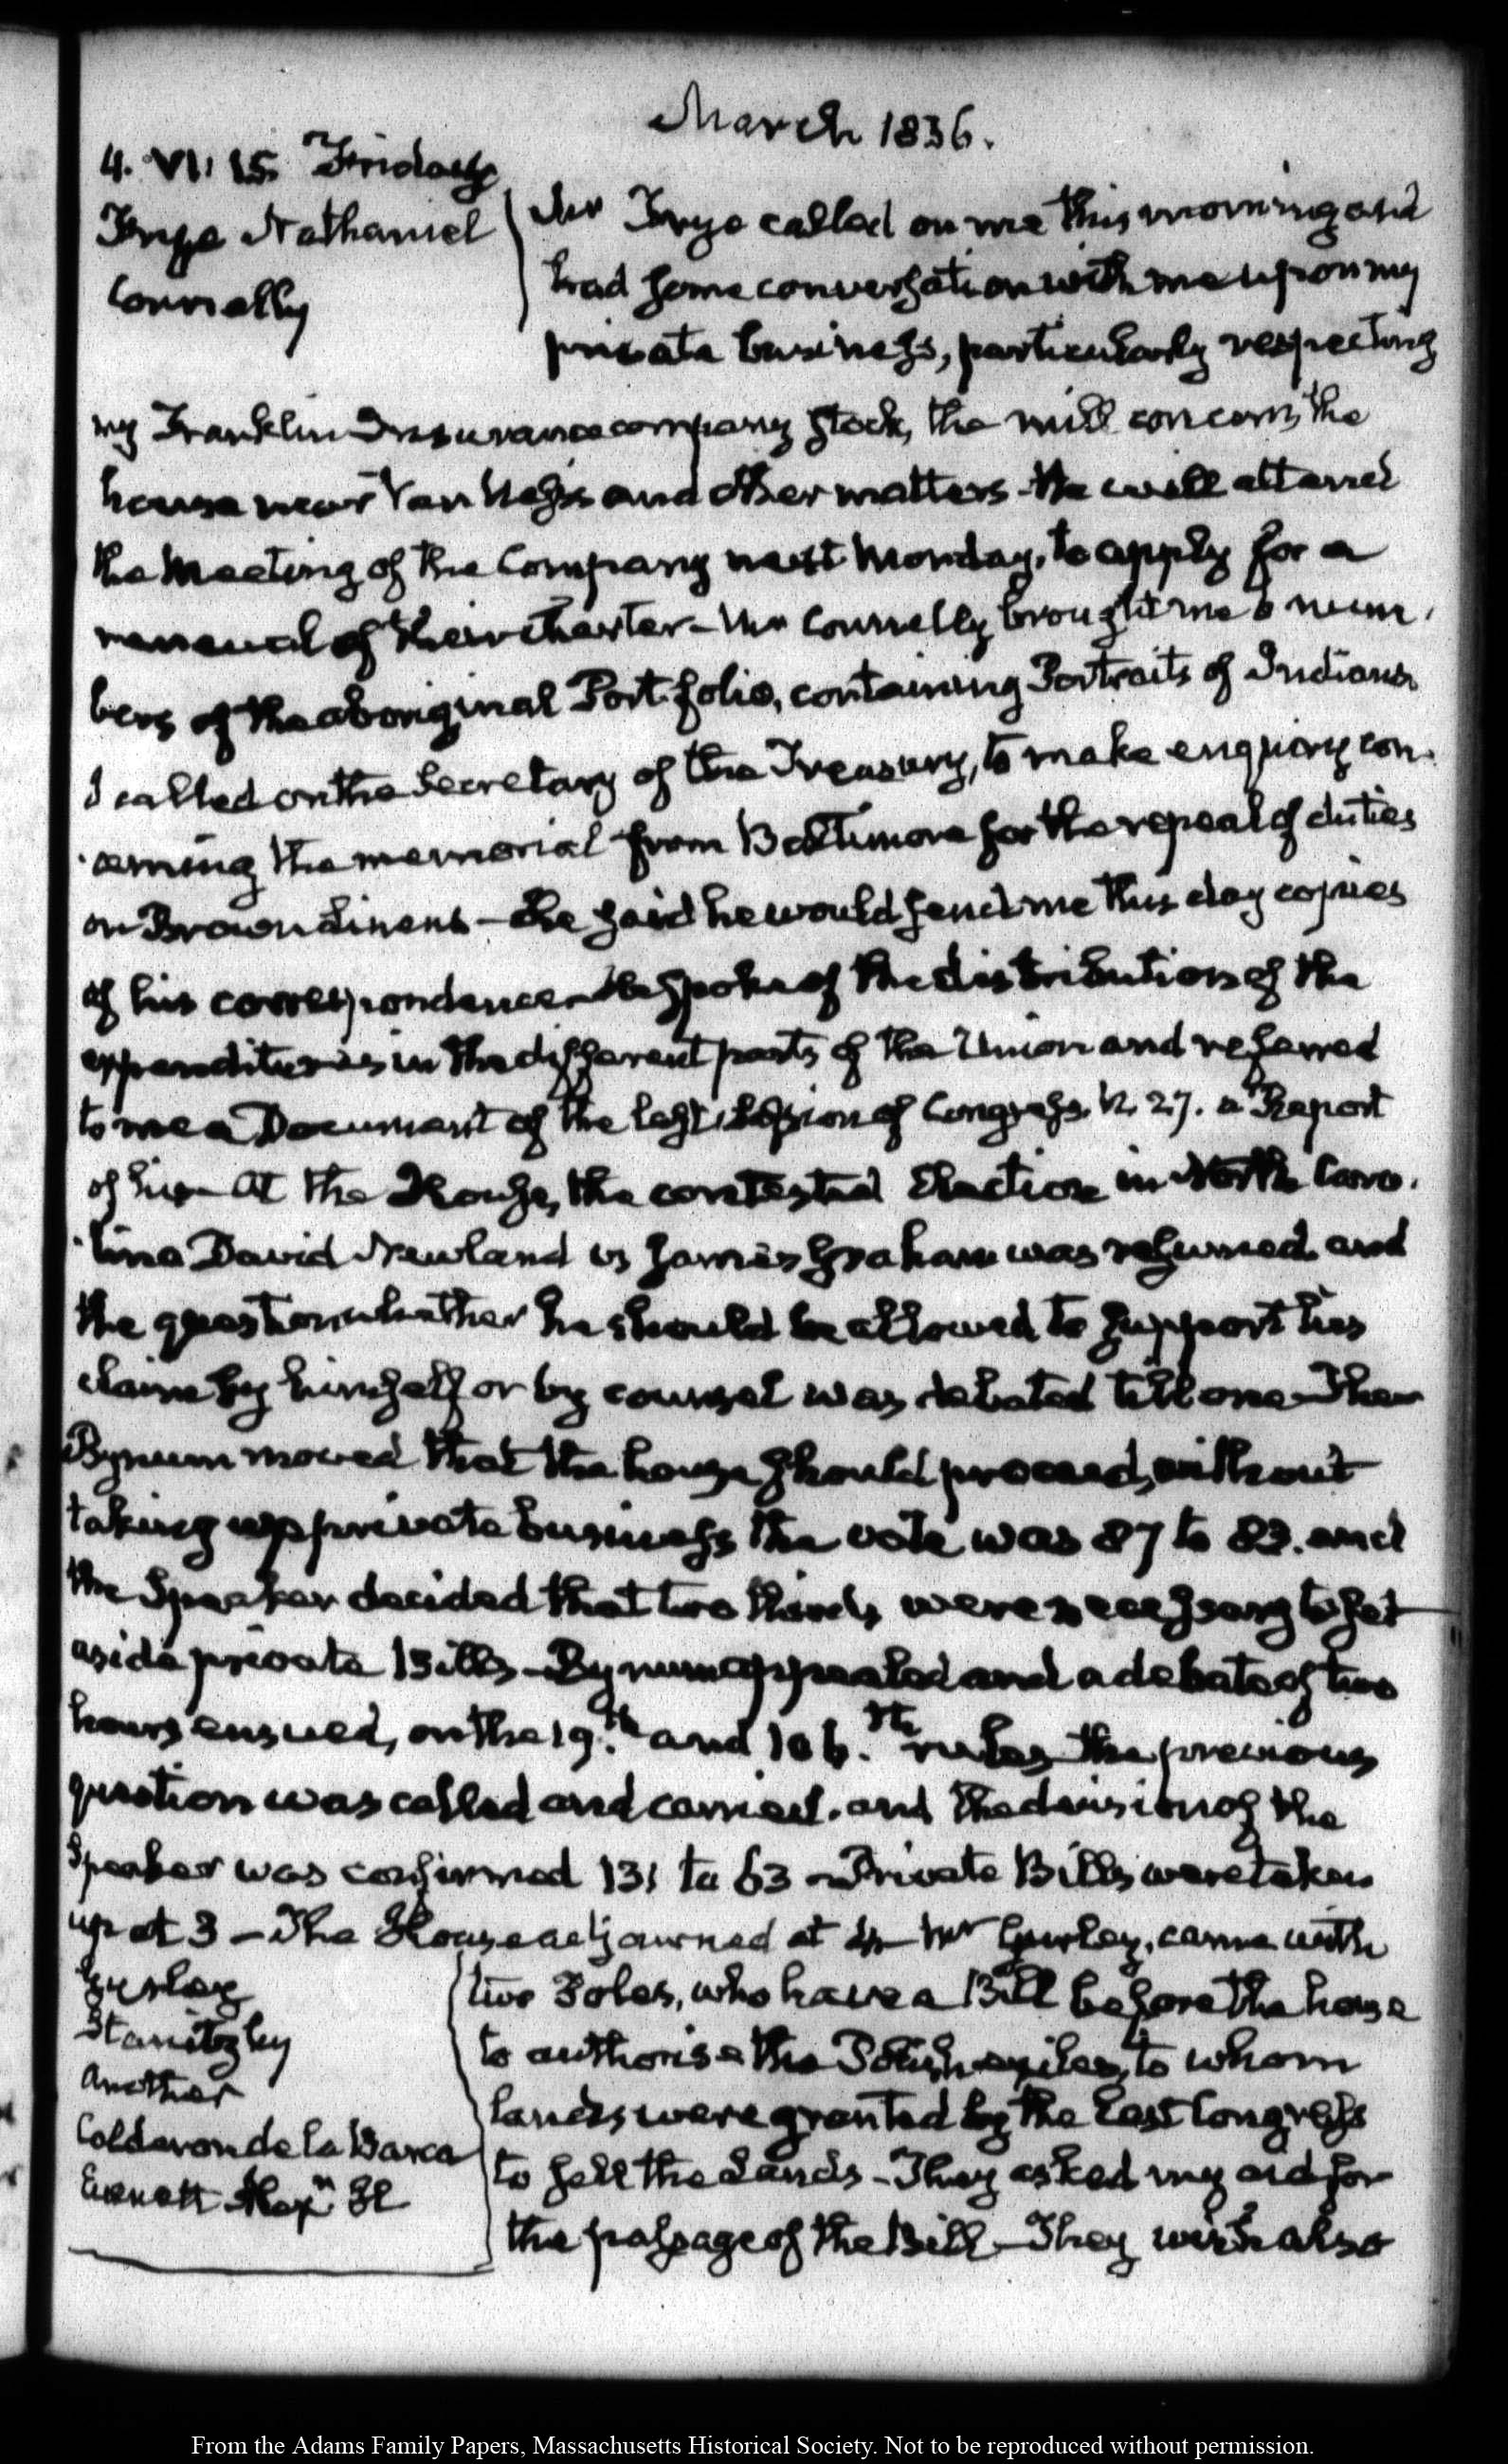 March 1836.
4. VI: 15. Friday
Frye Nathaniel
Connelly
Mr Frye called on me this morning and
had some conversation with me upon my
private business, particularly respecting
my Franklin Insurance company stock, the mill concern, the
house near Van Ness's and other matters. He will attend
the Meeting of the Company next Monday, to apply for a
renewal of their charter – Mr Connelly brought me 6 num-
bers of the aboriginal Port folio, containing Portraits of Indians
I called on the Secretary of the Treasury, to make enquiry con-
cerning the memorial from Baltimore for the repeal of duties
on Brown Linens – He said he would send me this day copies
of his correspondence – He spoke of the distribution of the
expenditures in the different parts of the Union and referred
to me a Document of the last Session of Congress, N. 27. a Report
of his – At the House, the contested Election in North Caro-
lina David Newland vs James Graham was resumed and
the question whether he should be allowed to support his
claim by himself or by counsel was debated till one – Then
Bynum moved that the house should proceed, without
taking up private business the vote was 87 to 83. and
the Speaker decided that two thirds were necessary to set
aside private Bills – Bynum appealed and a debate of two
hours ensued, on the 19.th and 106.th rules – the previous
question was called and carried. and the decision of the
Speaker was confirmed 131 to 63 – Private Bills were taken
up at 3 – The House adjourned at 4 – Mr Gurley, came with
Gurley
another
Calderon de la Barca
Everett Alexr H
two Poles, who have a Bill before the house
to authorise the Polish exiles, to whom
lands were granted by the last Congress
to sell the Lands – They asked my aid for
the passage of the Bill – They wish also
From the Adams Family Papers, Massachusetts Historical Society. Not to be reproduced without permission.